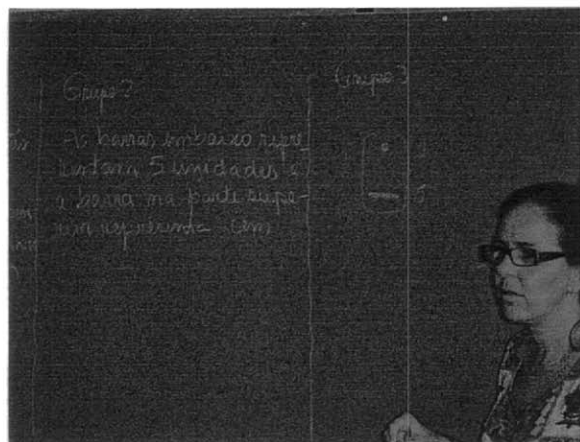 Grupo 2
As barras embaixo repre
sentam 5 unidades e
a barra na parte supe-
rior representa cem
Grupo 3
5